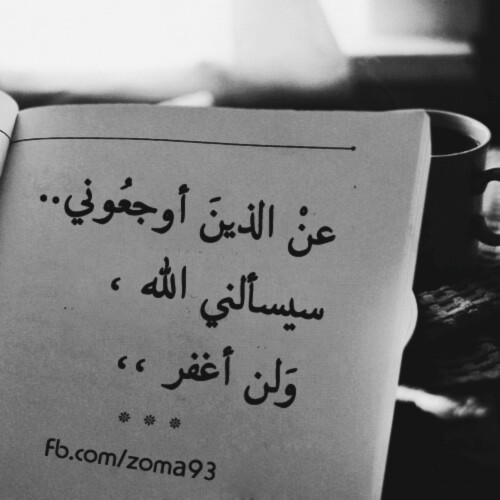 عنْ الذينَ أوجعُوني..
سيسألني الله ،
وَلن أغفر ،،
* * *
fb.com/zoma93